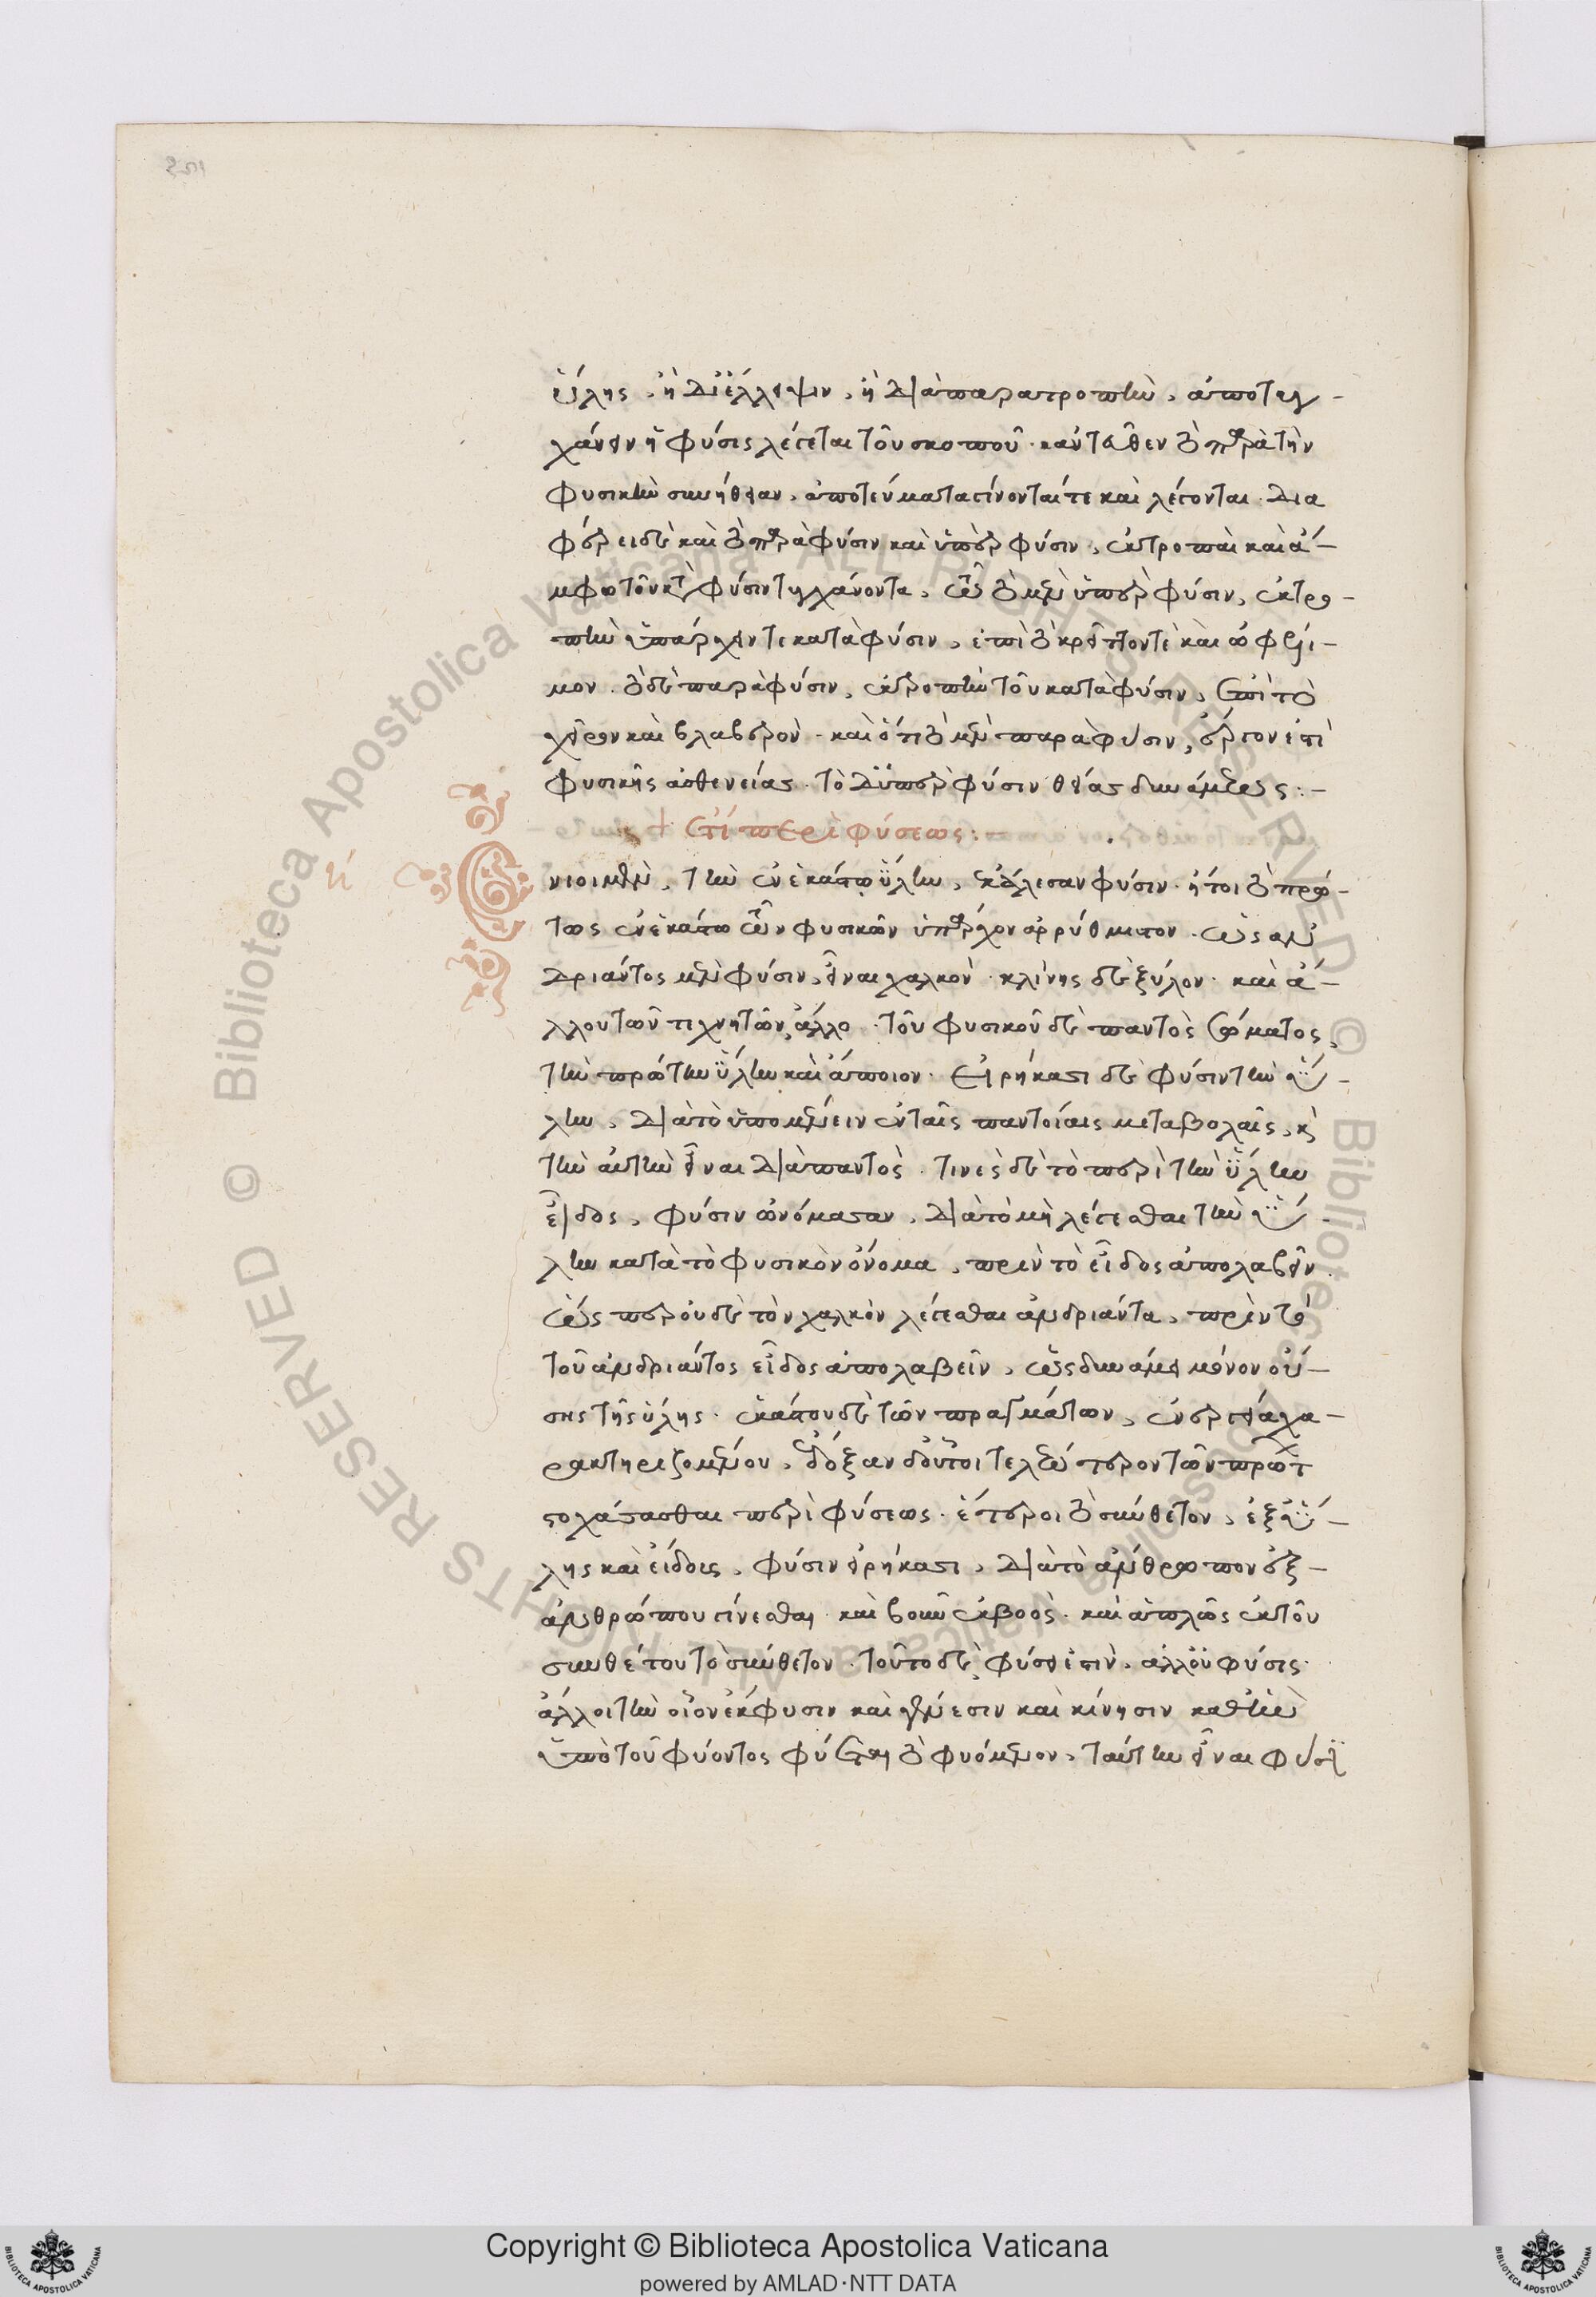 ὕλης, ἢ δι' ἔλλειψιν, ἢ διὰ παρατροπὴν, ἀποτυγ-
χάνειν ἡ φύσις λέγεται τοῦ σκοποῦ. κἀντεῦθεν τὰ παρὰ τὴν
φυσικὴν συνήθειαν, ἀποτεύγματα γίνονταί τε καὶ λέγονται. δια
φέρει δὲ καὶ τὸ παρὰ φύσιν καὶ ὑπὲρ φύσιν, ἐκτροπαὶ καὶ ἄ-
μφω τοῦ κατὰ φύσιν τυγχάνοντα, ὡς τὸ μὲν ὑπὲρ φύσιν, ἐκτρο-
πὴν ὑπάρχειν τε κατὰ φύσιν, ἐπὶ τὸ κρεῖττον τε καὶ ὠφέλι-
μον. τὸ δὲ παρὰ φύσιν, ἐκτροπὴν τοῦ κατὰ φύσιν, ἐπὶ τὸ
χεῖρον καὶ βλαβερὸν. καὶ ὅτι τὸ μὲν παρὰ φύσιν, ἔργον ἐστὶ
φυσικῆς ἀσθενείας. τὸ δ' ὑπὲρ φύσιν θείας δυνάμεως:-
+ Ἔτι περὶ φύσεως:
η΄
Ἔνιοι μὲν, τὴν ἐν ἑκάστῳ ὕλην, ἐκάλεσαν φύσιν. ἤτοι τὸ πρώ-
τως ἐν ἑκάστῳ τῶν φυσικῶν ὑπάρχον ἀρρύθμιστον. ὡς ἀν
δριάντος μὲν φύσιν, εἶναι χαλκὸν. κλίνης δὲ ξύλον. καὶ ἄ-
λλου τῶν τεχνητῶν, ἄλλο. τοῦ φυσικοῦ δὲ παντὸς σώματος,
τὴν πρώτην ὕλην καὶ ἄποιον. Εἰρήκασι δὲ φύσιν τὴν ὕ-
λην, διὰ τὸ ὑπομένειν ἐν ταῖς παντοίαις μεταβολαῖς, κ
τὴν αὐτὴν εἶναι διὰ παντὸς. τινὲς δὲ τὸ περὶ τὴν ὕλην
εἶδος, φύσιν ὠνόμασαν, διὰ τὸ μὴ λέγεσθαι τὴν ὕ-
λην κατὰ τὸ φυσικὸν ὄνομα, πρὶν τὸ εἶδος ἀπολαβεῖν.
ὥσπερ οὐδὲ τὸν χαλκὸν λέγεσθαι ἀνδριάντα, πρὶν τὸ
τοῦ ἀνδριάντος εἶδος ἀπολαβεῖν, ὡς δυνάμει μόνον οὔ-
σης τῆς ὕλης. ἑκάστου δὲ τῶν πραγμάτων, ἐνεργείᾳ χα-
ρακτηριζομένου, ἔδοξαν οὗτοι τελεώτερον τῶν πρώτ
στοχάσασθαι περὶ φύσεως. ἕτεροι τὸ σύνθετον, ἐξ ὕ-
λης καὶ εἴδους, φύσιν εἰρήκασι, διὰ τὸ ἄνθρωπον ἐξ-
ἀνθρώπου γίνεσθαι. καὶ βοῦν ἐκ βοὸς. καὶ ἁπλῶς ἐκ τοῦ
συνθέτου τὸ σύνθετον. τοῦτο δὲ, φύσει ἐστὶν, ἀλλ' οὐ φύσις.
ἄλλοι τὴν οἷον ἔκφυσιν καὶ γένεσιν καὶ κίνησιν καθ' ἣν
ὑπὸ τοῦ φύοντος φύεται τὸ φυόμενον, ταύτην εἶναι φύσιν